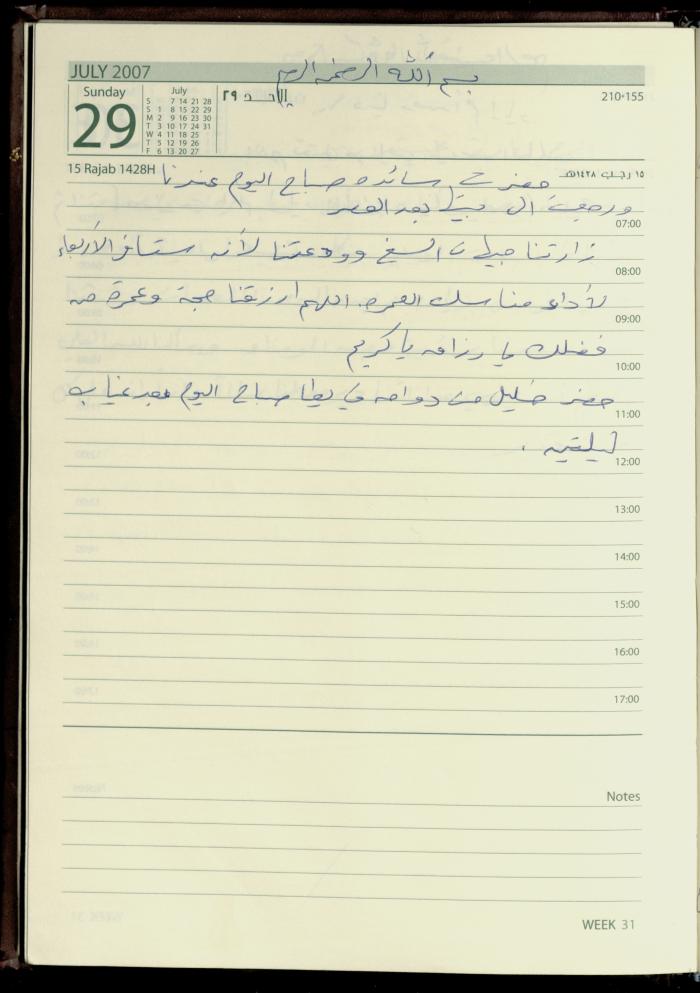 بسم الله الرحمن الرحيم
JULY 2007
Sunday
29
July
S 7 14 21 28
S 1 8 15 22 29
M 2 9 16 23 30
T 3 10 17 24 31
W 4 11 18 25
T 5 12 19 26
F 6 13 20 27
الأحـد ٢٩
210-155
15 Rajab 1428H
١٥ رجب ١٤٢٨هـ
حضرت سائده صباح اليوم عندنا
ورجعت الى بيتها بعد العصر
07:00
زارتنا من السفح وودعتنا لأنه ستسافر الأربعاء
08:00
لأداء مناسك العمره. اللهم ارزقنا حجة وعمرة من
09:00
فضلك يا رزاق يا كريم
10:00
حضر خليل من دوامه في يطا صباح اليوم بعد غياب
11:00
ليلتين .
12:00
13:00
14:00
15:00
16:00
17:00
Notes
WEEK 31